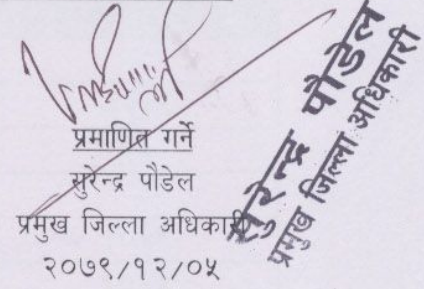 प्रमाणित गर्ने
सुरेन्द्र पौडेल
प्रमुख जिल्ला अधिकारी
२०७९/१२/०५
सुरेन्द्र पौडेल
प्रमुख जिल्ला अधिकारी